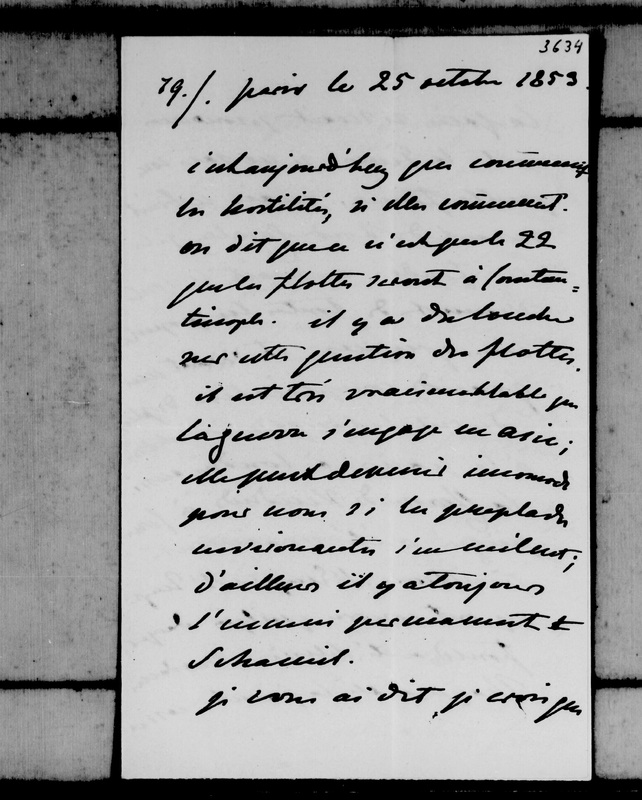 3634
79./. paris le 25 octobre 1853.
c'est aujourd'huy que commencent
les hostilités, si elles commencent.
on dit que ce n'est que le 22
que les flottes seront à Constan=
tinople. il y a du louche
sur cette question des flottes.
il est très vraisemblable que
la guerre s'engage en asie;
elle peut devenir incomode
pour nous si les peuplades
environantes s'en mêlent;
d'ailleurs il y a toujours
l'ennemi permanent
Schamil.
je vous ai dit, je crois que